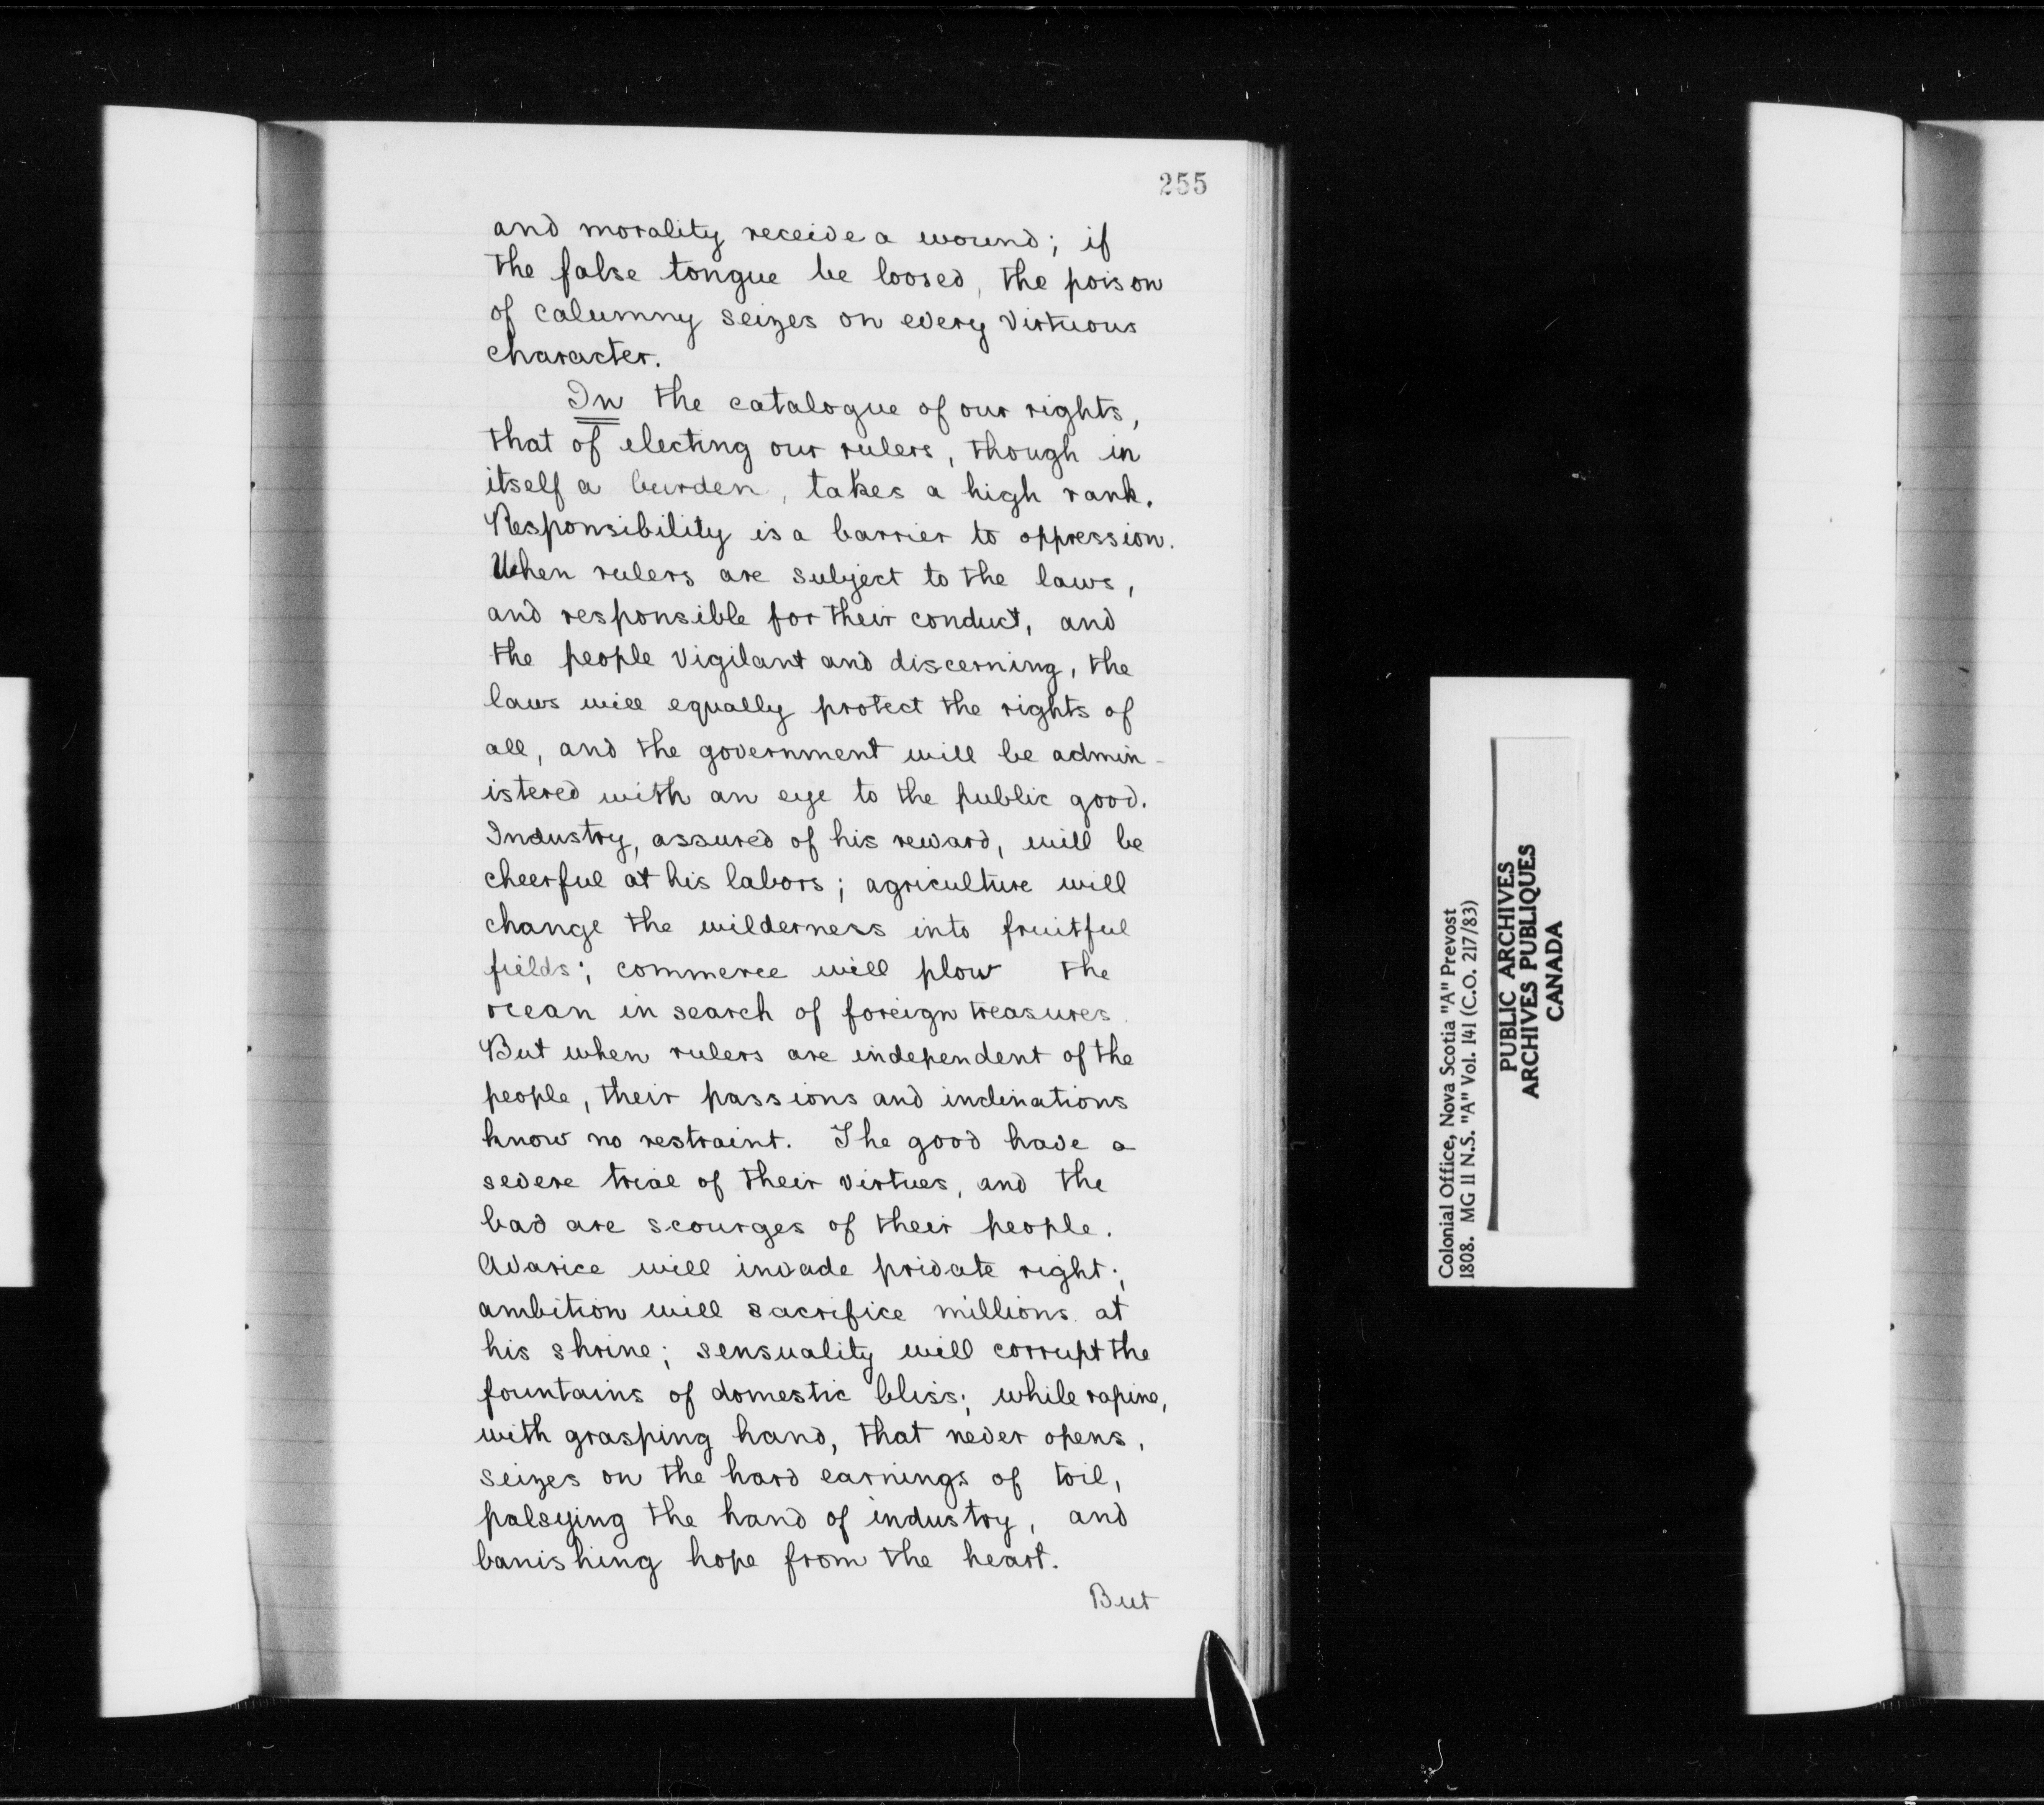 255
and morality receive a wound; if
the false tongue be loosed, the poison
of calumny seizes on every virtuous
character.
In the catalogue of our rights,
that of electing our rulers, though in
itself a burden, takes a high rank.
Responsibility is a barrier to oppression.
When rulers are subject to the laws,
and responsible for their conduct, and
the people vigilant and discerning, the
laws will equally protect the rights of
all, and the government will be admin-
istered with an eye to the public good.
Industry, assured of his reward, will be
cheerful at his labors; agriculture will
change the wilderness into fruitful
fields; commerce will plow the
ocean in search of foreign treasures.
But when rulers are independent of the
people, their passions and inclinations
know no restraint. The good have a
severe trial of their virtues, and the
bad are scourges of their people.
Avarice will invade private right;
ambition will sacrifice millions at
his shrine; sensuality will corrupt the
fountains of domestic bliss; while rapine,
with grasping hand, that never opens,
seizes on the hard earnings of toil,
palsying the hand of industry, and
banishing hope from the heart.
But
Colonial Office, Nova Scotia "A" Prevost
1808. MG 11 N.S. "A" Vol. 141 (C.O. 217/83)
PUBLIC ARCHIVES
ARCHIVES PUBLIQUES
CANADA